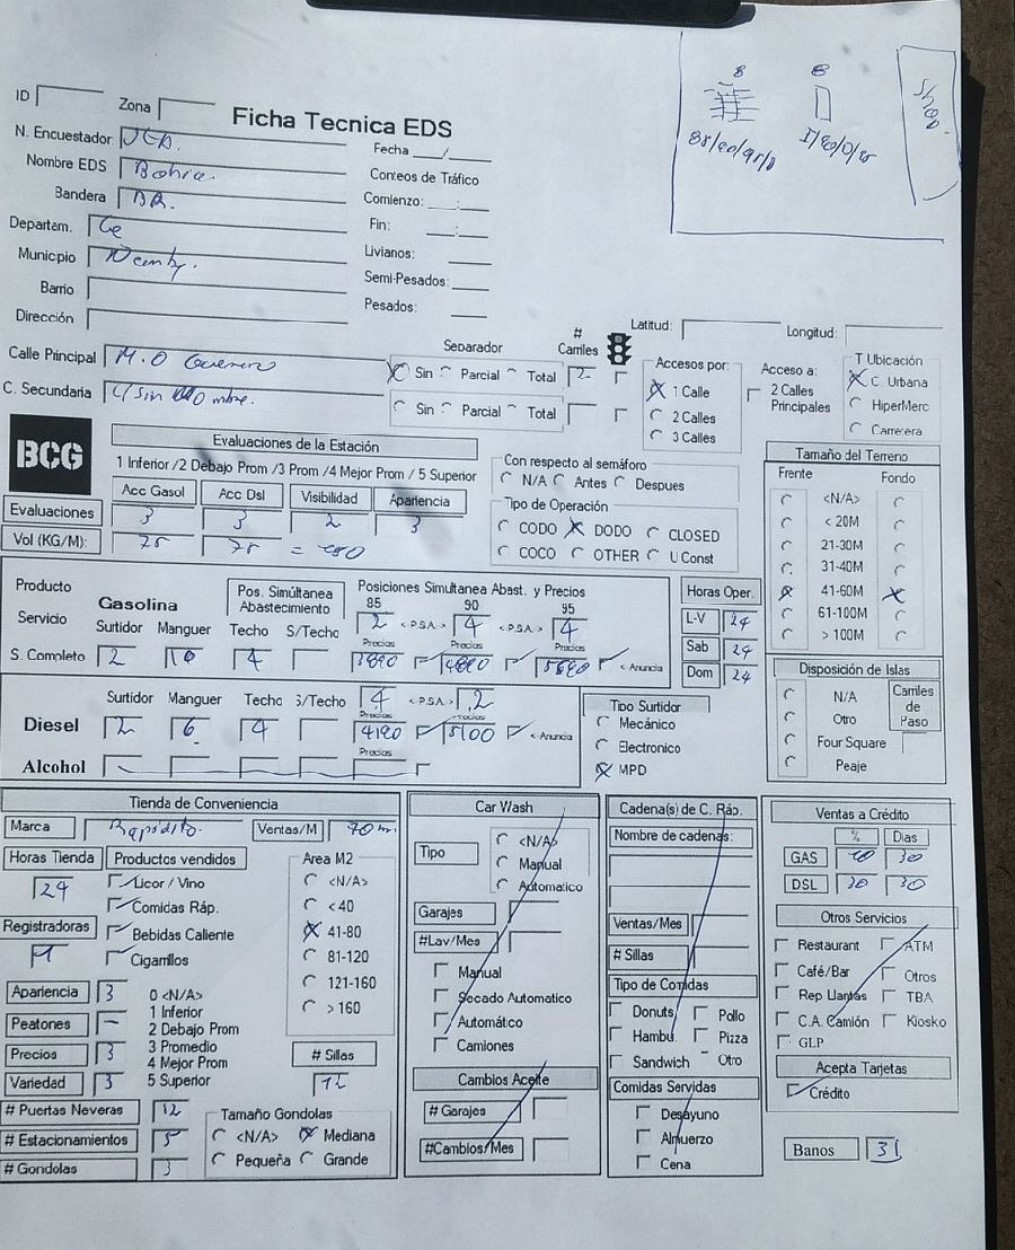 8 8
85/90/95/D
Shop
ID
Zona
Ficha Tecnica EDS
N. Encuestador
Fecha __/__
Nombre EDS
Conteos de Tráfico
Bandera BR.
Comienzo: __:__
Departam. Ce
Fin: __:__
Municpio
Livianos:
Barrio
Semi-Pesados:
Dirección
Pesados:
Latitud:
Longitud:
Calle Principal M.O
Separador
# Carriles
Sin Parcial Total 2
Accesos por:
1 Calle
2 Calles
3 Calles
Acceso a:
2 Calles Principales
T Ubicación
C. Urbana
HiperMerc
Carretera
C. Secundaria C/ Sin Nombre.
Sin Parcial Total
BCG
Evaluaciones de la Estación
1 Inferior /2 Debajo Prom /3 Prom /4 Mejor Prom / 5 Superior
Acc Gasol Acc Dsl Visibilidad Apariencia
Evaluaciones 3 3 2 3
Vol (KG/M): 75 75
Con respecto al semáforo
N/A Antes Despues
Tipo de Operación
CODO DODO CLOSED
COCO OTHER U Const
Tamaño del Terreno
Frente Fondo
<N/A>
< 20M
21-30M
31-40M
41-60M
61-100M
> 100M
Producto
Servicio
Gasolina
Pos. Simúltanea Abastecimiento
Posiciones Simultanea Abast. y Precios
85 90 95
2 < P.S.A. > 4 < P.S.A. > 4
Surtidor Manguer Techo S/Techo
Precios Precios Precios
S. Completo 2 10 4 3890 4890 5690 < Anuncia
Horas Oper.
L-V 24
Sab 24
Dom 24
Surtidor Manguer Techo S/Techo 4 < P.S.A. > 2
Precios Precios
Diesel 2 6 4 4190 5100 < Anuncia
Precios
Alcohol
Tipo Surtidor
Mecánico
Electronico
MPD
Disposición de Islas
N/A
Otro
Four Square
Peaje
Carriles de Paso
Tienda de Conveniencia
Marca Rapidito. Ventas/M 70 m
Horas Tienda
24
Productos vendidos
Licor / Vino
Comidas Ráp.
Bebidas Caliente
Cigarrillos
Registradoras
Area M2
<N/A>
< 40
41-80
81-120
121-160
> 160
Apariencia 3
Peatones -
Precios 3
Variedad 3
0 <N/A>
1 Inferior
2 Debajo Prom
3 Promedio
4 Mejor Prom
5 Superior
# Sillas
12
# Puertas Neveras 12
# Estacionamientos 5
# Gondolas 3
Tamaño Gondolas
<N/A> Mediana
Pequeña Grande
Car Wash
Tipo
<N/A>
Manual
Automatico
Garajes
#Lav/Mes
Manual
Secado Automatico
Automático
Camiones
Cambios Aceite
# Garajes
#Cambios/Mes
Cadena(s) de C. Ráp.
Nombre de cadenas:
Ventas/Mes
# Sillas
Tipo de Comidas
Donuts Pollo
Hambu. Pizza
Sandwich Otro
Comidas Servidas
Desayuno
Almuerzo
Cena
Ventas a Crédito
% Dias
GAS 30
DSL 30 30
Otros Servicios
Restaurant ATM
Café/Bar Otros
Rep Llantas TBA
C.A. Camión Kiosko
GLP
Acepta Tarjetas
Crédito
Banos 3